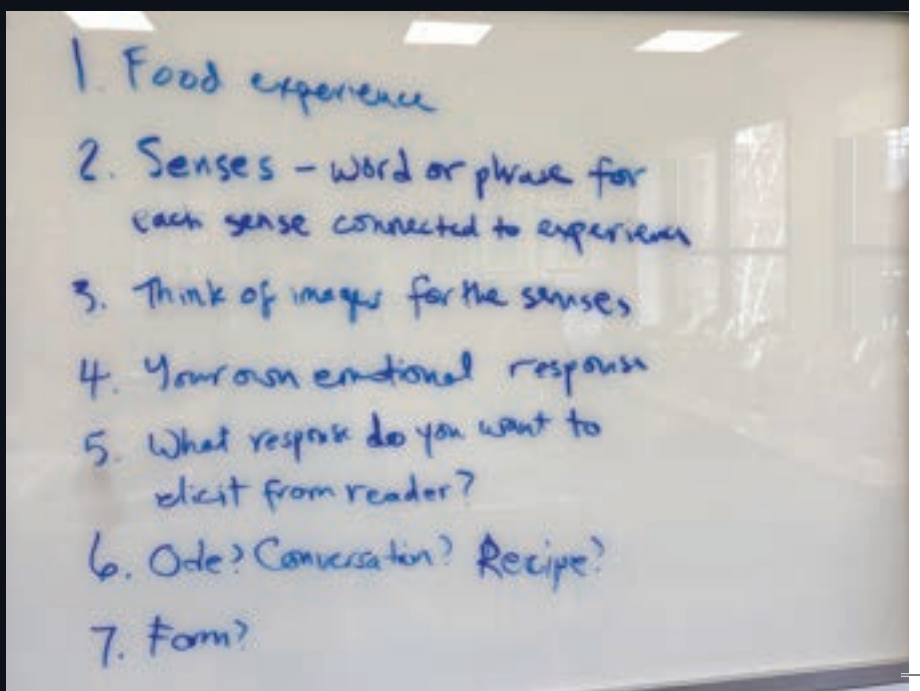 1. Food experience
2. Senses - word or phrase for
each sense connected to experience
3. Think of images for the senses
4. Your own emotional response
5. What response do you want to
elicit from reader?
6. Ode? Conversation? Recipe?
7. Form?